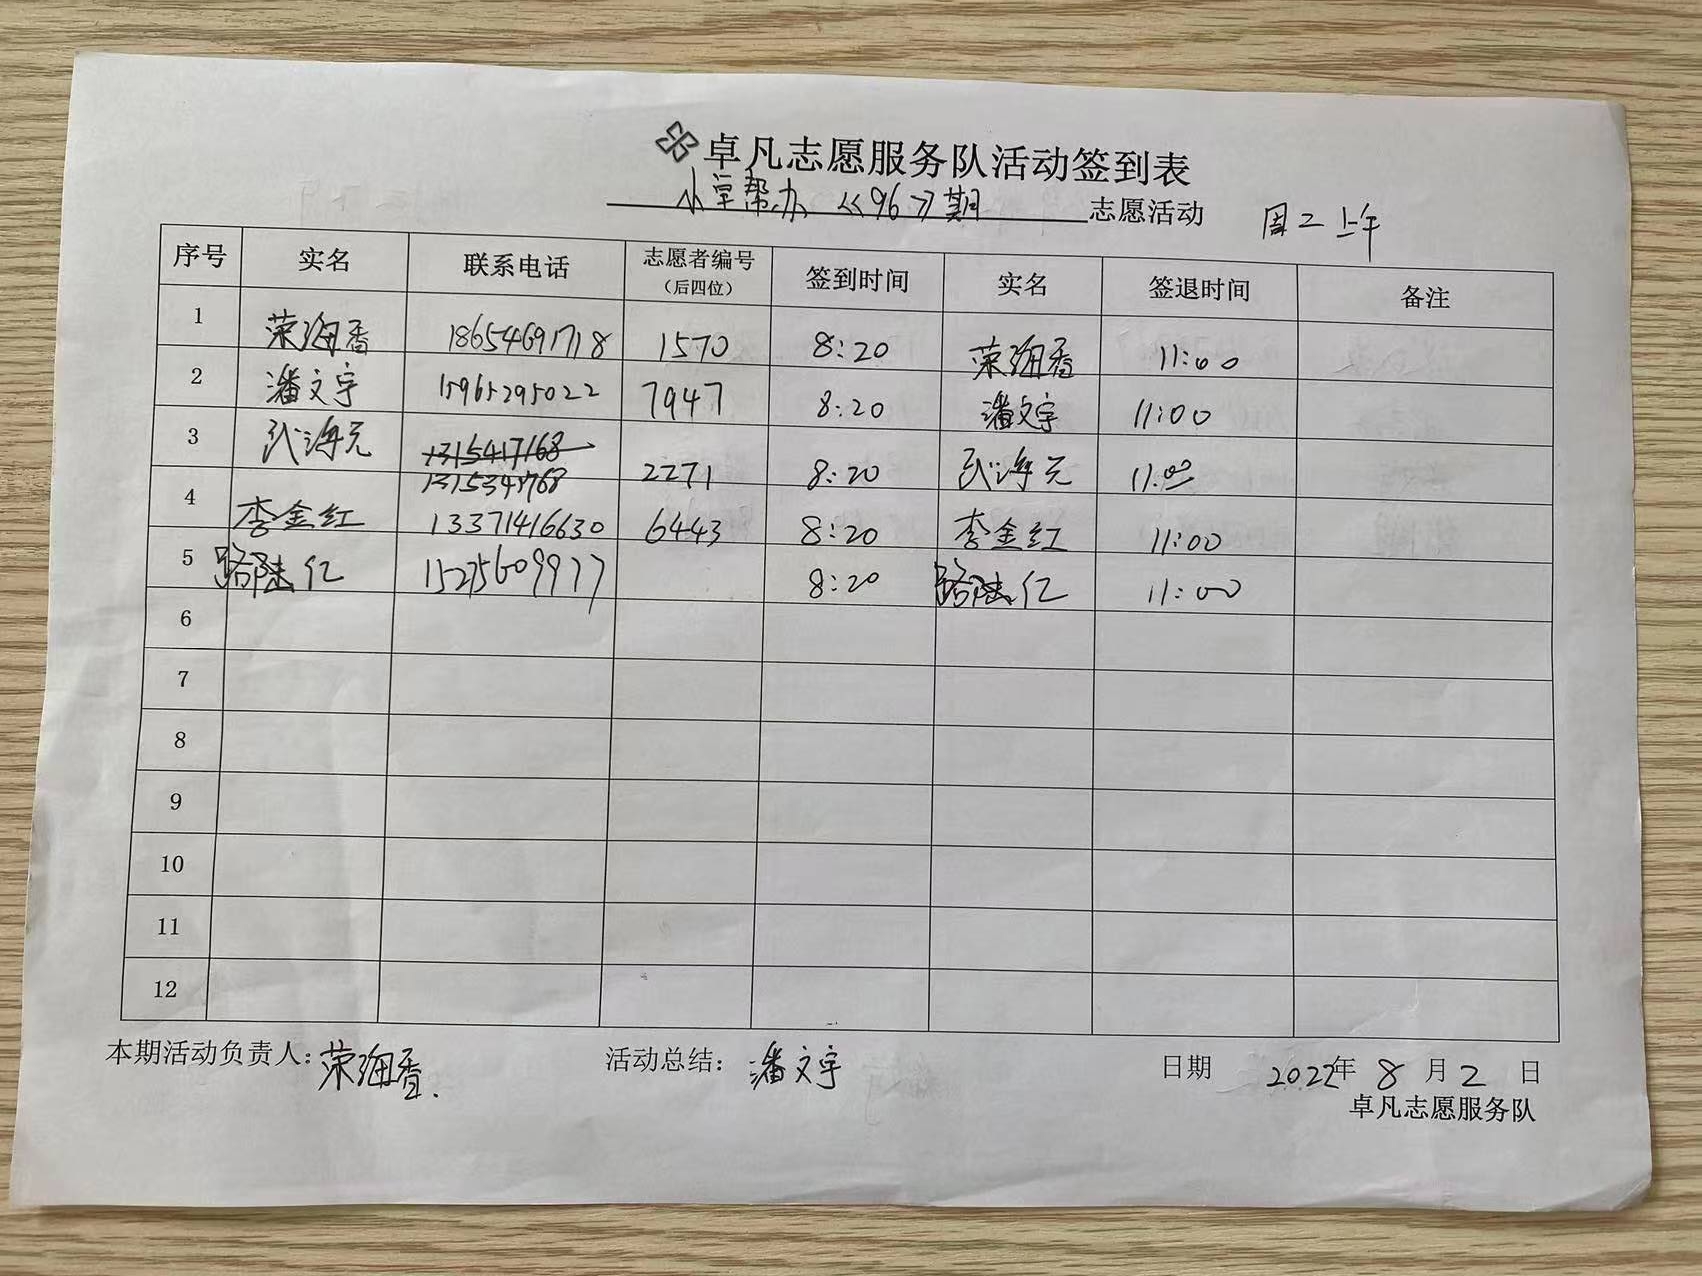 卓凡志愿服务队活动签到表
小卓帮办《96》期 志愿活动 周二上午
序号 实名 联系电话 志愿者编号（后四位） 签到时间 实名 签退时间 备注
1 荣海香 18654691718 1570 8:20 荣海香 11:00
2 潘文宇 15965295022 7947 8:20 潘文宇 11:00
3 武海元 2271 8:20 武海元 11:00
4 李金红 13371416630 6443 8:20 李金红 11:00
5 路陆仁 15275609977 8:20 路陆仁 11:00
6
7
8
9
10
11
12
本期活动负责人：荣海香. 活动总结：潘文宇 日期 2022年8月2日
卓凡志愿服务队